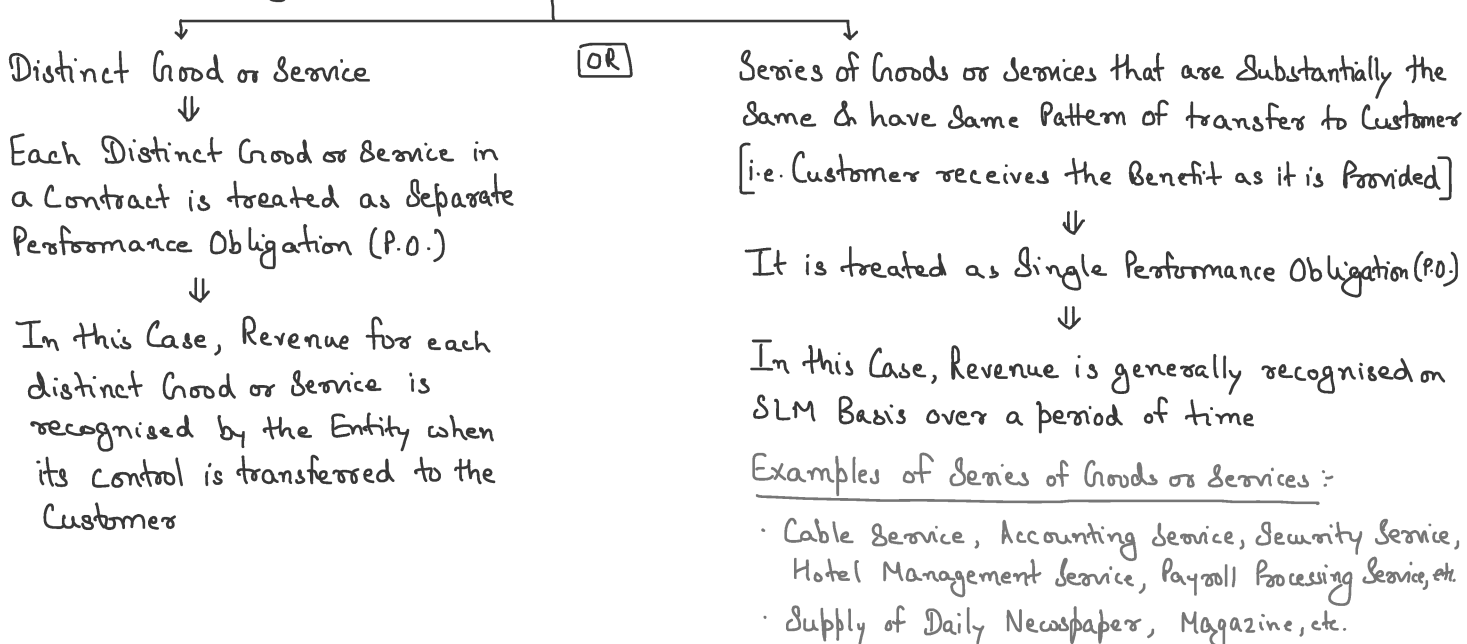 Distinct Good or Service
⇓
Each Distinct Good or Service in
a Contract is treated as Separate
Performance Obligation (P.O.)
⇓
In this Case, Revenue for each
distinct Good or Service is
recognised by the Entity when
its control is transferred to the
Customer
OR
Series of Goods or Services that are Substantially the
Same & have Same Pattern of transfer to Customer
[i.e. Customer receives the Benefit as it is Provided]
⇓
It is treated as Single Performance Obligation (P.O.)
⇓
In this Case, Revenue is generally recognised on
SLM Basis over a period of time
Examples of Series of Goods or Services :-
· Cable Service, Accounting Service, Security Service,
Hotel Management Service, Payroll Processing Service, etc.
· Supply of Daily Newspaper, Magazine, etc.